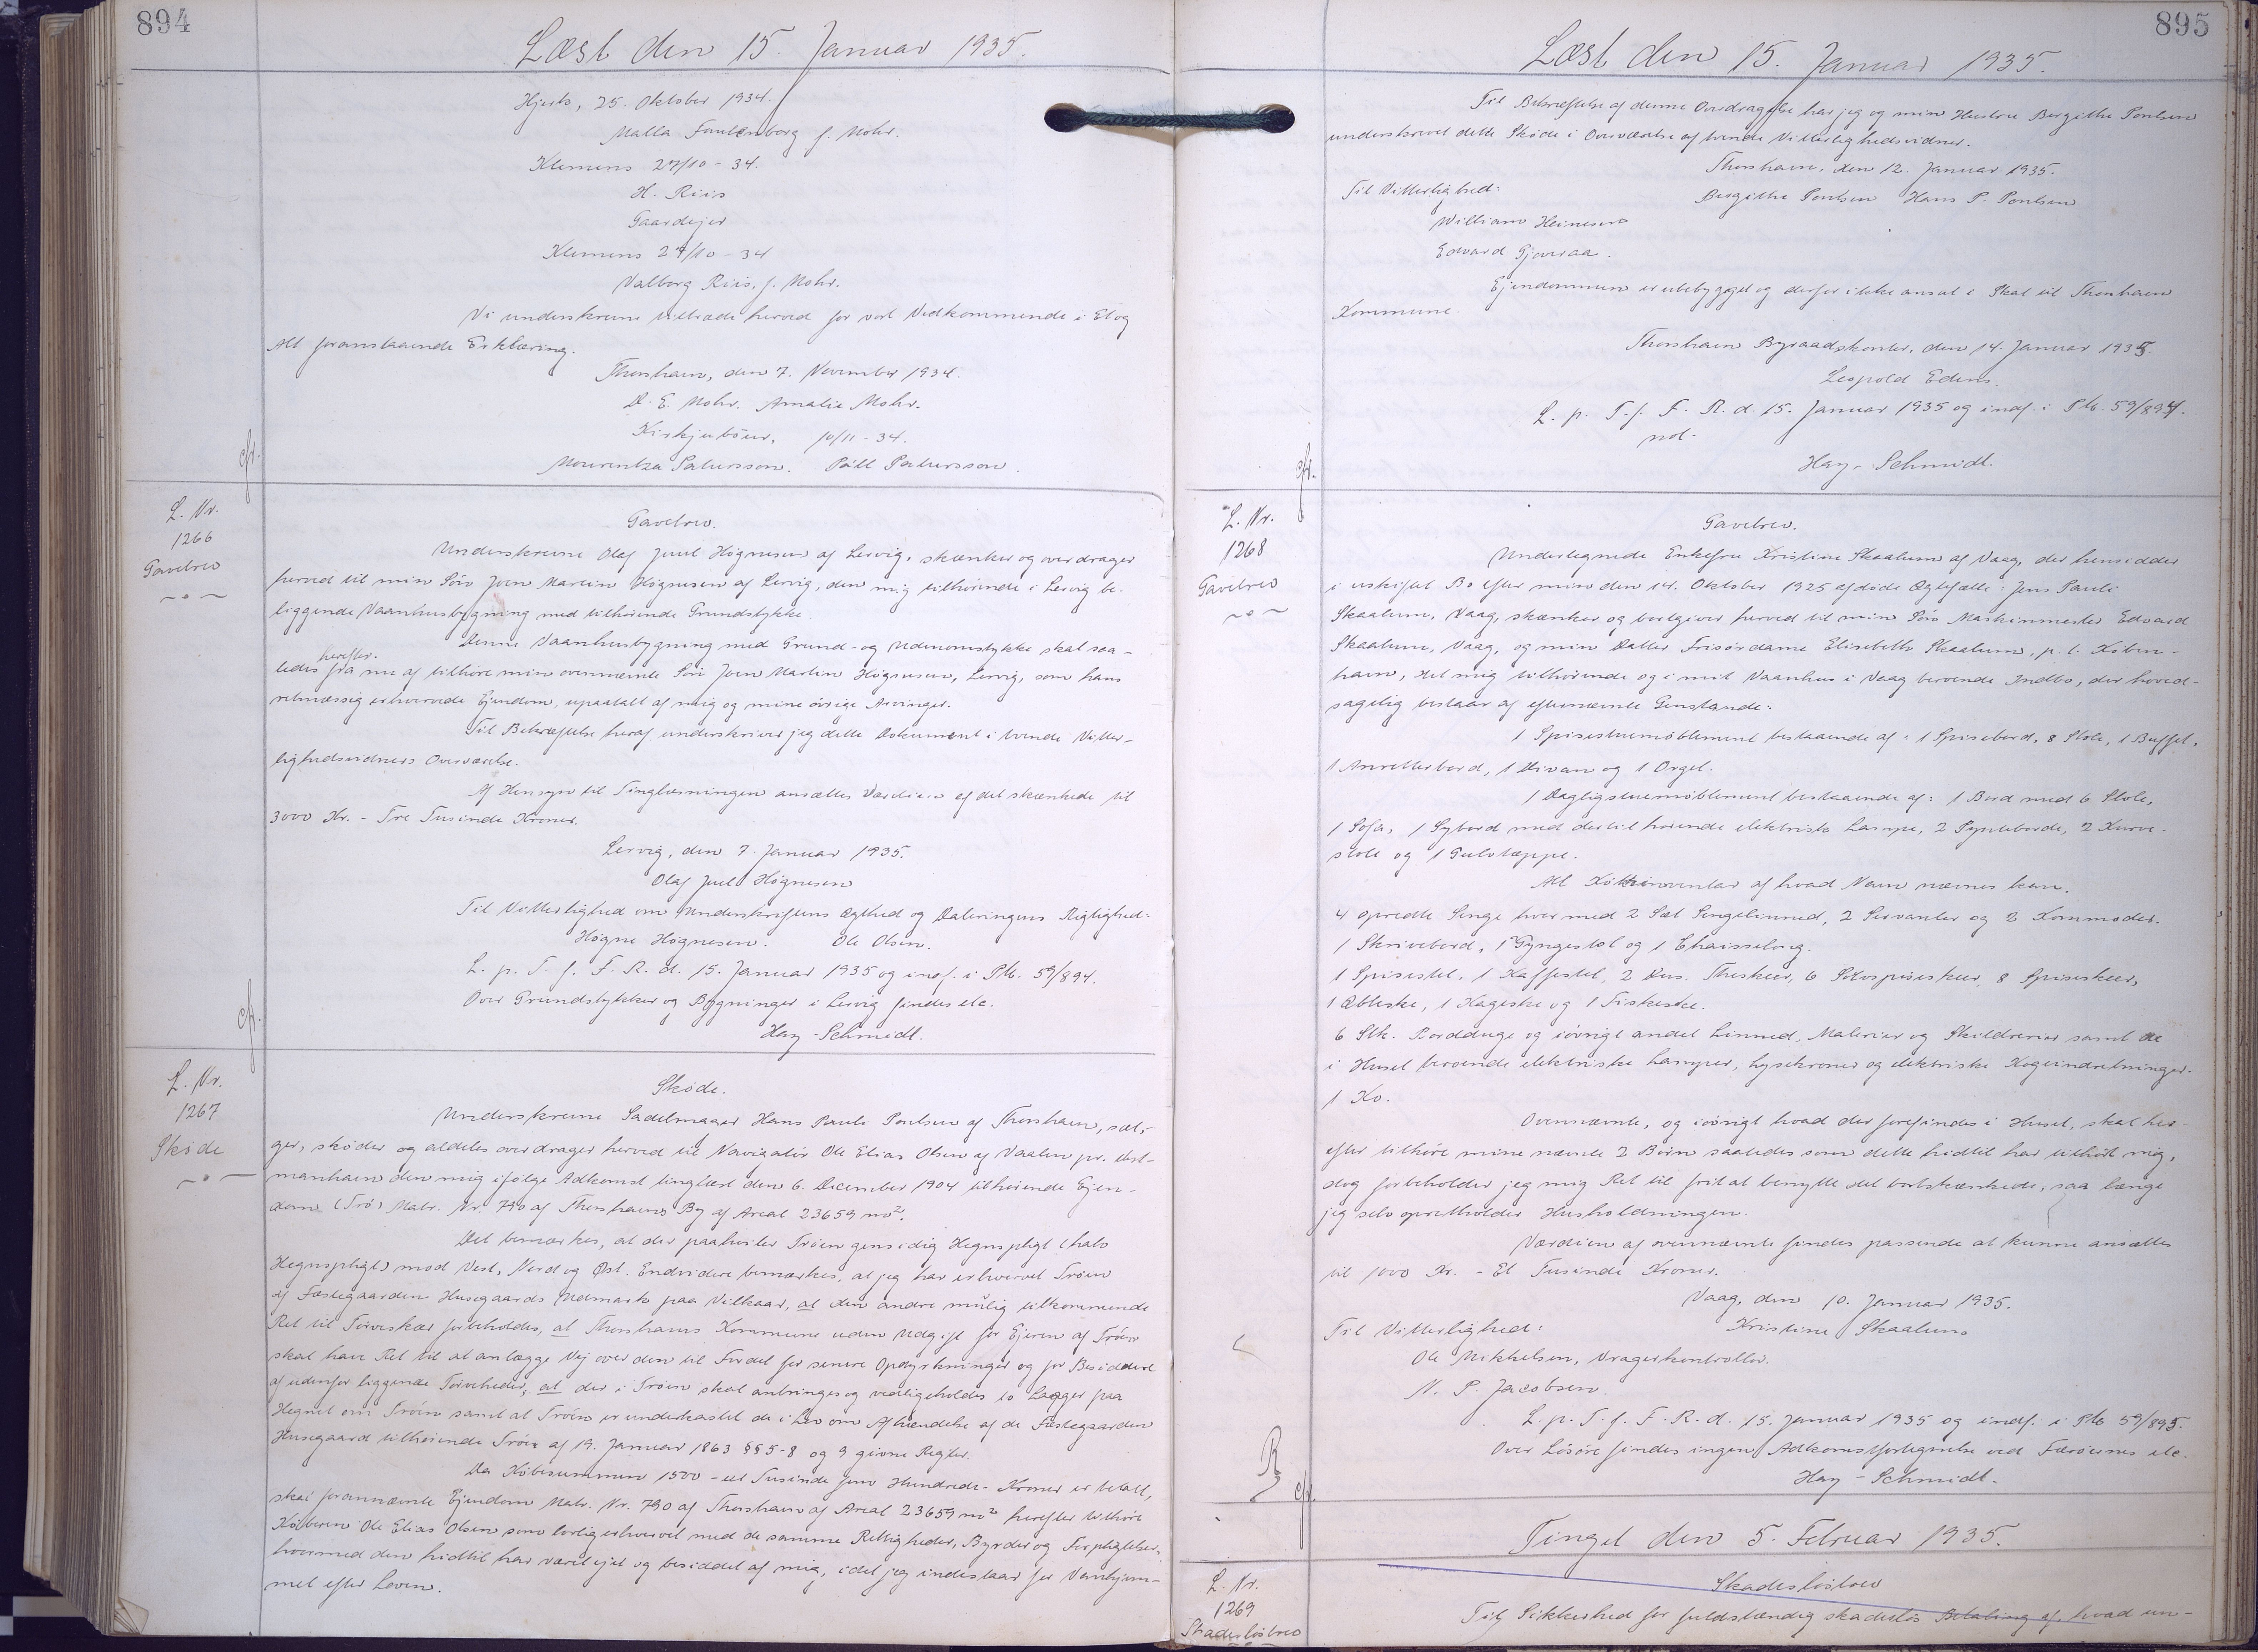 894
Læst den 15. Januar 1935.
Hjerk, 25. Oktober 1934.
Malla Faulenborg f. Mohr.
Klemens 27/10 - 34.
H. Riis
Gaardejer
Klemens 27/10 - 34
Valborg Riis, f. Mohr.
Vi underskrevne tiltræde herved for vort Vedkommende i Et og
Alt foranstaaende Erklæring.
Thorshavn, den 7. November 1934.
D. E. Mohr. Amalie Mohr.
Kirkjubøur, 10/11 - 34.
Mourentza Patursson. Páll Patursson.
cfr.
L. Nr.
1266
Gavebrev
Gavebrev.
Underskrevne Olaf Juul Högnesen af Lervig, skænker og overdrager
herved til min Sön Joen Martin Högnesen af Lervig, den mig tilhörende i Lervig be-
liggende Vaanhusbygning med tilhörende Grundstykke.
Denne Vaanhusbygning med Grund- og Udenomstykke skal saa-
herefter.
ledes fra nu af tilhöre min ovennævnte Sön Joen Martin Högnesen, Lervig, som hans
retmæssig erhvervede Ejendom, upaatalt af mig og mine övrige Arvinger.
Til Bekræftelse heraf underskriver jeg dette Dokument i tvende Vitter-
lighedsvidners Overværelse.
Af Hensyn til Tinglæsningen ansættes Værdien af det skænkede til
3000 Kr. - Tre Tusinde Kroner.
Lervig, den 7. Januar 1935.
Olaf Juul Högnesen
Til Vitterlighed om Underskriftens Ægthed og Dateringens Rigtighed:
Högne Högnesen. Ole Olsen.
L. p. T. f. F. R. d. 15. Januar 1935 og indf. i Ptb. 59/894.
Over Grundstykker og Bygninger i Lervig findes etc.
Hay-Schmidt.
cfr.
L. Nr.
1267
Sköde
Sköde.
Underskrevne Sadelmager Hans Pauli Poulsen af Thorshavn, sæl-
ger, sköder og aldeles overdrager herved til Navigatör Ole Elias Olsen af Vaalen pr. Vest-
manhavn den mig ifölge Adkomst tinglæst den 6. December 1904 tilhörende Ejen-
dom (Trö) Matr. Nr. 790 af Thorshavns By af Areal 23659 m².
Det bemærkes, at der paahviler Tröen gensidig Hegnspligt (halv
Hegnspligt) mod Vest, Nord og Öst. Endvidere bemærkes, at jeg har erhvervet Tröen
af Fæstegaarden Husegaards Udmark paa Vilkaar, at den andre mulig tilkommende
Ret til Törveskær forbeholdes, at Thorshavns Kommune uden Udgift for Ejeren af Tröen
skal have Ret til at anlægge Vej over den til Fordel for senere Opdyrkninger og for Besiddere
af udenfor liggende Törveheder, at der i Tröen skal anbringes og vedligeholdes to Lagger paa
Hegnet om Tröen samt at Tröen er underkastet de i Lov om Afhændelse af de Fæstegaarden
Husegaard tilhörende Tröer af 19. Januar 1863 §§ 5-8 og 9 givne Regler.
Da Köbesummen 1500 - et Tusinde fem Hundrede - Kroner er betalt,
skal forannævnte Ejendom Matr. Nr. 790 af Thorshavn af Areal 23659 m² herefter tilhöre
Köberen Ole Elias Olsen som lovlig erhvervet med de samme Rettigheder, Byrder og Forpligtelser,
hvormed den hidtil har været ejet og besiddet af mig, idet jeg indestaar for Vanhjem-
mel efter Loven.
895
Læst den 15. Januar 1935.
Til Bekræftelse af denne Overdragelse har jeg og min Hustru Bergithe Poulsen
underskrevet dette Sköde i Overværelse af tvende Vitterlighedsvidner.
Thorshavn, den 12. Januar 1935.
Til Vitterlighed:
Bergithe Poulsen Hans P. Poulsen
William Heinesen
Edvard Gjoveraa.
Ejendommen er ubebygget og derfor ikke ansat i Skat til Thorshavn
Kommune.
Thorshavn Byraadskontor, den 14. Januar 1935.
Leopold Edens.
L. p. T. f. F. R. d. 15. Januar 1935 og indf. i Ptb. 59/894.
not.
Hay-Schmidt.
cfr.
L. Nr.
1268
Gavebrev
Gavebrev.
Undertegnede Enkefru Kristine Skaalum af Vaag, der hensidder
i uskiftet Bo efter min den 14. Oktober 1925 afdöde Ægtefælle: Jens Pauli
Skaalum, Vaag, skænker og bortgiver herved til min Sön Maskinmester Edvard
Skaalum, Vaag, og min Datter Frisördame Elisebeth Skaalum, p. t. Köben-
havn, det mig tilhörende og i mit Vaanhus i Vaag beroende Indbo, der hoved-
sagelig bestaar af efternævnte Genstande:
1 Spisestuemöblement bestaaende af: 1 Spisebord, 8 Stole, 1 Buffet,
1 Anretterbord, 1 Divan og 1 Orgel.
1 Dagligstuemöblement bestaaende af: 1 Bord med 6 Stole,
1 Sofa, 1 Sybord med dertil hörende elektrisk Lampe, 2 Pynteborde, 2 Kurve-
stole og 1 Gulvtæppe.
Alt Kökkeninventar af hvad Navn nævnes kan.
4 opredte Senge hver med 2 Sæt Sengelinned, 2 Servanter og 3 Kommoder.
1 Skrivebord, 1 Gyngestol og 1 Chaisselong.
1 Spisestel, 1 Kaffestel, 2 Dus. Theskeer, 6 Sölvspiseskeer, 8 Spiseskeer,
1 Öbleske, 1 Kageske og 1 Fiskeske.
6 Stk. Borddúge og iövrigt andet Linned, Malerier og Skilderier samt de
i Huset beroende elektriske Lamper, Lysekroner og elektriske Kogeindretninger.
1 Ko.
Ovennævnte, og iövrigt hvad der forefindes i Huset, skal her-
efter tilhöre mine nævnte 2 Börn saaledes som dette hidtil har tilhört mig,
dog forbeholder jeg mig Ret til frit at benytte det bortskænkede, saa længe
jeg selv opretholder Husholdningen.
Værdien af ovennævnte findes passende at kunne ansættes
til 1000 Kr. - Et Tusinde Kroner.
Vaag, den 10. Januar 1935.
Til Vitterlighed: Kristine Skaalum
Ole Mikkelsen, Vragerkontrollör.
N. P. Jacobsen.
L. p. T. f. F. R. d. 15. Januar 1935 og indf. i Ptb 59/895.
Over Lösöre findes ingen Adkomstfortegnelse ved Færöernes etc.
Hay-Schmidt.
cfr.
Tinget den 5. Februar 1935.
L. Nr.
1269
Skadeslösbrev
Skadeslösbrev
Til Sikkerhed for fuldstændig skadeslös Betaling af, hvad un-